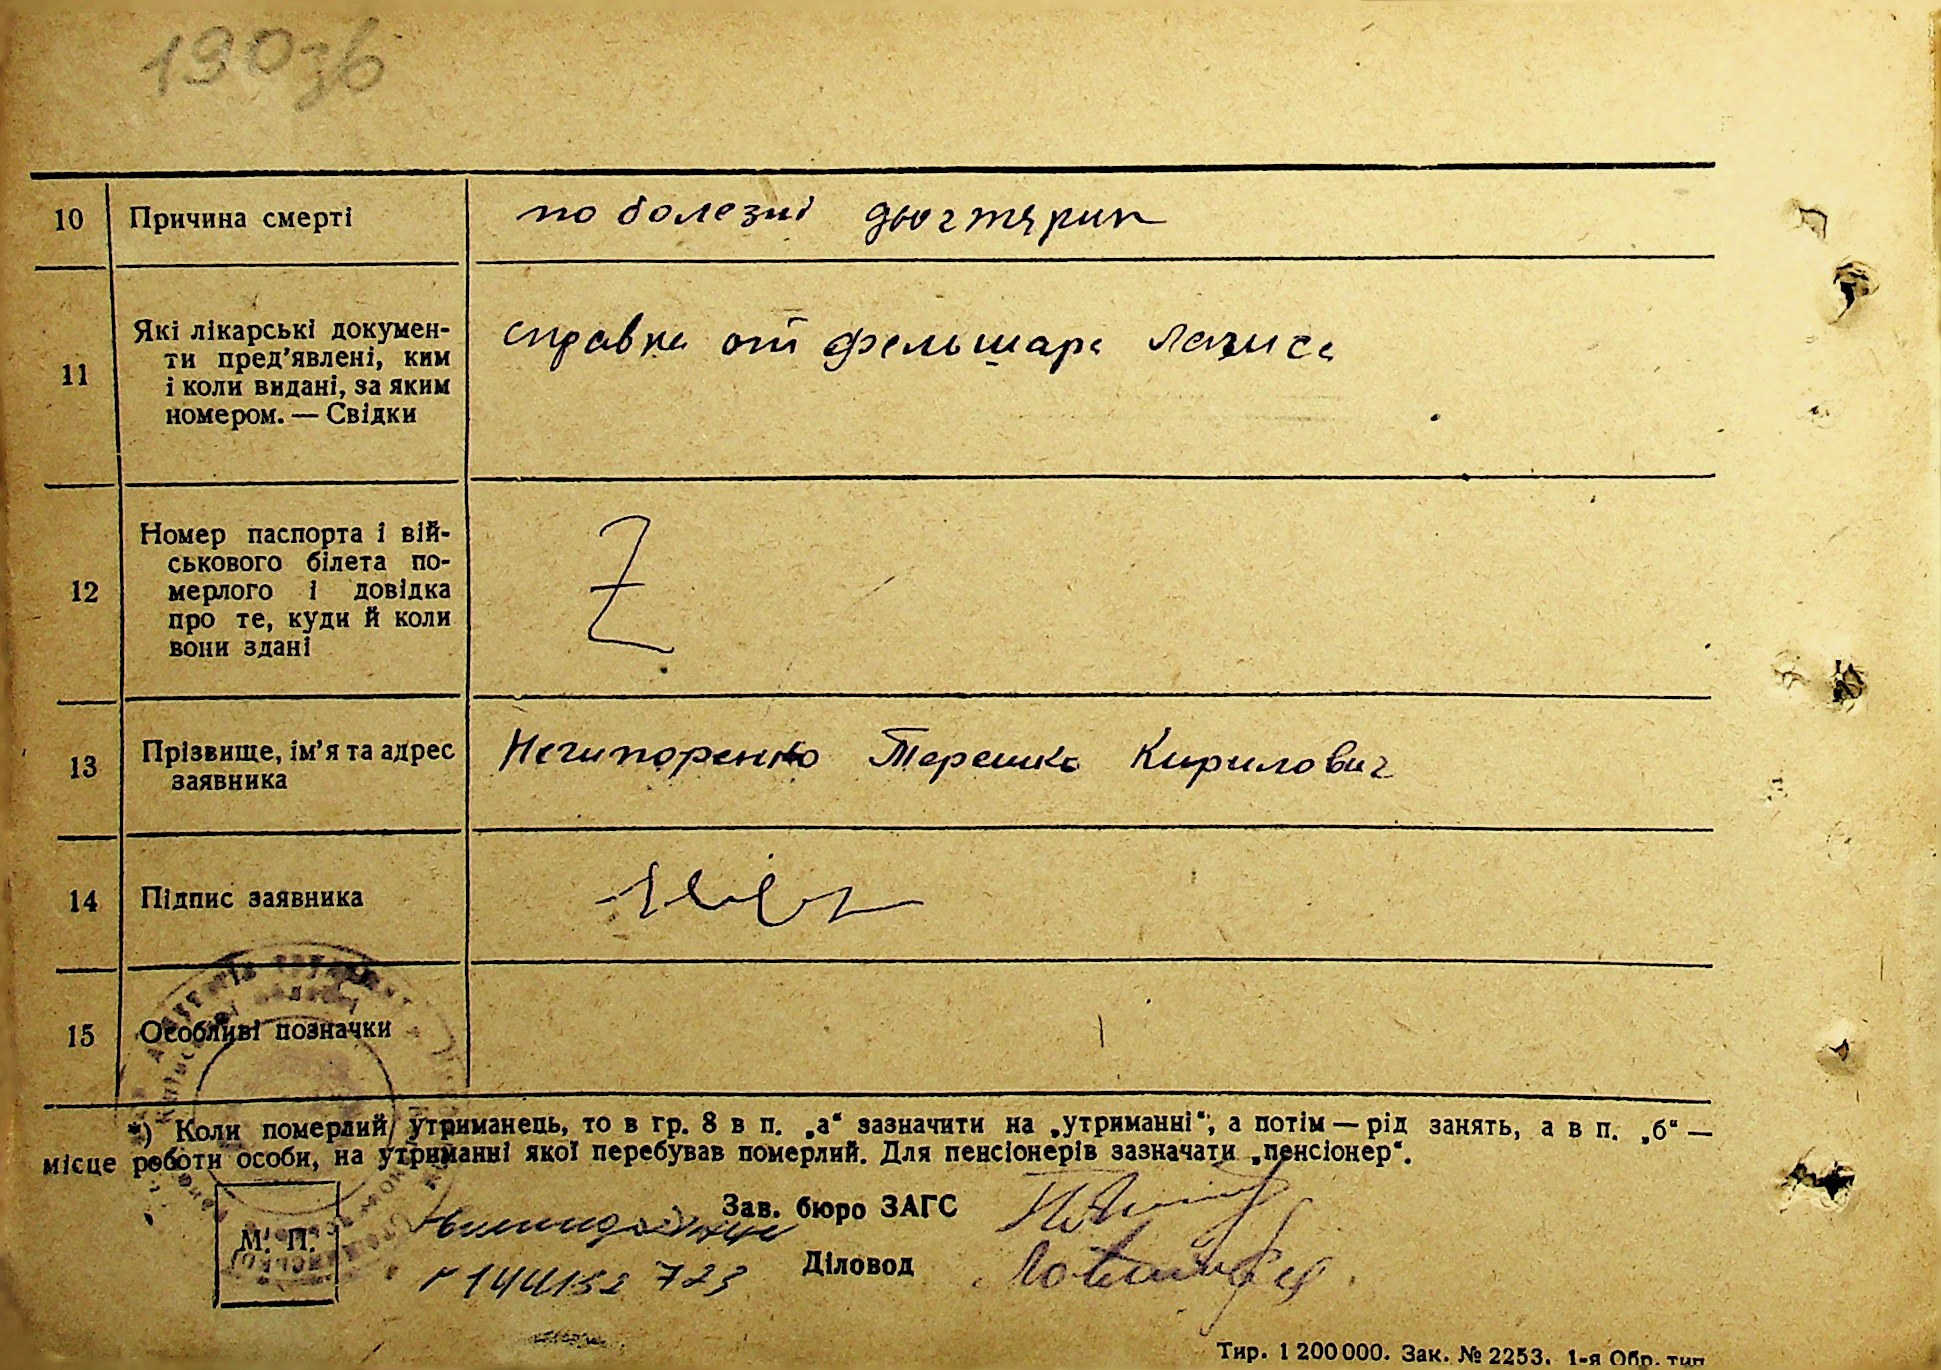 190зв
10 Причина смерті по болезні
11 Які лікарські докумен-
ти пред’явлені, ким
і коли видані, за яким
номером. — Свідки
справка от фельшара
12 Номер паспорта і вій-
ськового білета по-
мерлого і довідка
про те, куди й коли
вони здані
Z
13 Прізвище, ім’я та адрес
заявника
Негипоренко Терешко Кирилович
14 Підпис заявника
15 Особливі позначки
*) Коли померлий утриманець, то в гр. 8 в п. „а“ зазначити на „утриманні“, а потім — рід занять, а в п. „б“ —
місце роботи особи, на утриманні якої перебував померлий. Для пенсіонерів зазначати „пенсіонер“.
Зав. бюро ЗАГС
М. П.
Діловод
Тир. 1 200 000. Зак. № 2253. 1-я Обр. тип